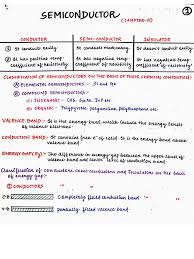 SEMICONDUCTOR
(CHAPTER-14)
CONDUCTOR
SEMI-CONDUCTOR
INSULATOR
① It conducts easily
② It has positive temp. coefficient of resistivity
① It conducts moderately
② It has negative temp. coefficient of resistivity
① It doesn't conduct easily
② It has negative temp. coefficient of resistivity
CLASSIFICATION OF SEMICONDUCTORS ON THE BASIS OF THEIR CHEMICAL COMPOSITION:
ELEMENTAL SEMICONDUCTORS: Si and Ge
COMPOUND SEMICONDUCTORS:
INORGANIC: CdS, GaAs, InP etc
ORGANIC: Polypyrrole, polyaniline, polythiophene etc
VALENCE BAND: It is the energy band which includes the energy levels of valence electrons
CONDUCTION BAND: It contains free e⁻ or not. It is the energy band above valence band
ENERGY GAP: The difference in energy between the upper level of valence band and lower level of conduction band
Classification of conductors, semi-conductors and Insulators on the basis of energy gap
① CONDUCTORS
Completely filled conduction band
partially filled valence band